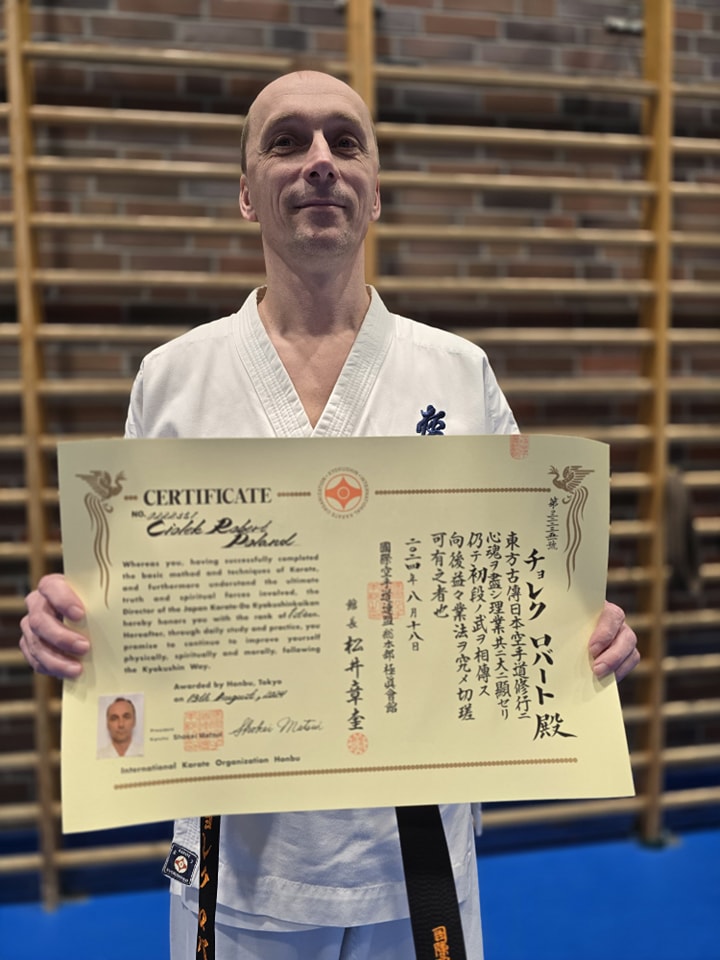 CERTIFICATE
NO.
Ciolek Robert
Poland
Whereas you, having successfully completed
the basic method and techniques of Karate,
and furthermore understand the ultimate
truth and spiritual forces involved, the
Director of the Japan Karate-Do Kyokushinkaikan
hereby honors you with the rank of 1 dan.
Hereafter, through daily study and practice, you
promise to continue to improve yourself
physically, spiritually and morally, following
the Kyokushin Way.
Awarded by Honbu, Tokyo
on 18th August, 2024
President
Shokei Matsui
Shokei Matsui
International Karate Organization Honbu
チョレク ロバート 殿
東方古傳日本空手道修行ニ
心魂ヲ盡シ理業共ニ大ニ顕セリ
仍テ初段ノ武ヲ相傳ス
向後益々業法ヲ究メ切瑳
可有之者也
二〇二四年八月十八日
國際空手道連盟総本部極眞會館
館長 松井章奎
極